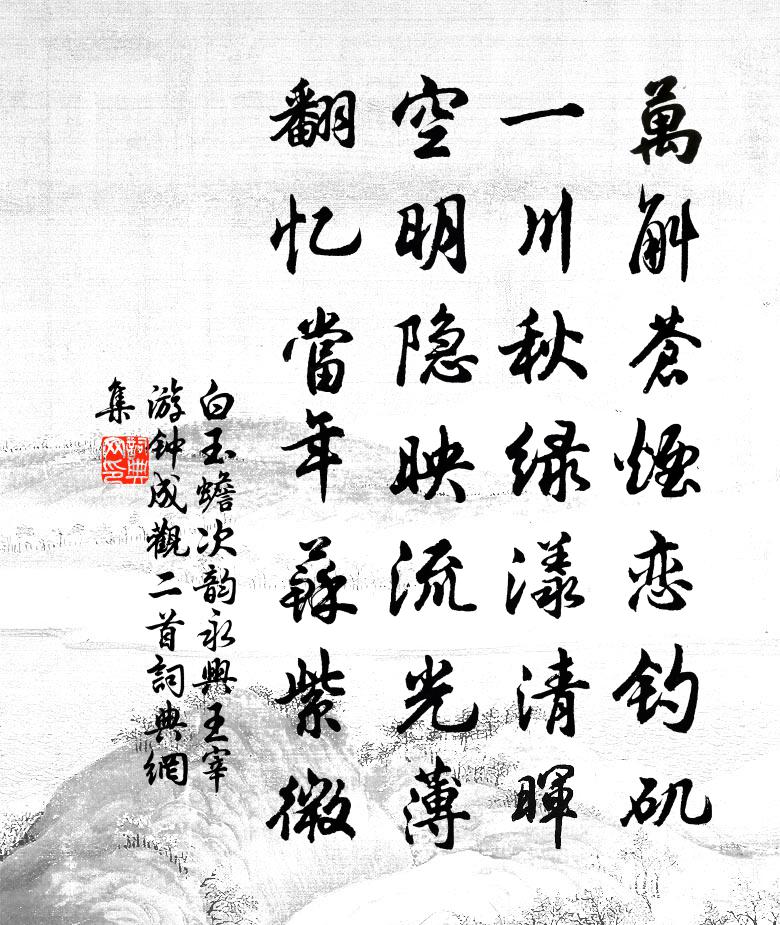 萬斛蒼煙恋钓矶
一川秋绿漾清暉
空明隐映流光薄
翻忆當年蘇紫微
白玉蟾次韵永興王宰
游钟成觀二首詞典網
集
詞典網印